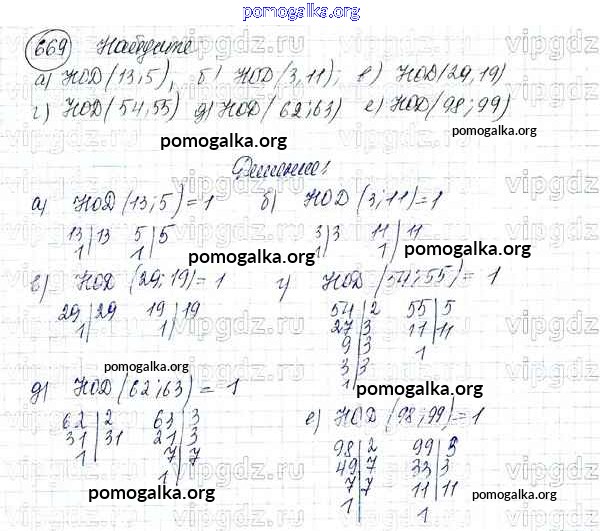 pomogalka.org
669 Найдите
а) НОД(13,5), б) НОД(3,11); в) НОД(29,19)
г) НОД(54,55) д) НОД(62;63) е) НОД(98;99)
pomogalka.org pomogalka.org
Решение:
а) НОД(13;5)=1 б) НОД(3;11)=1
13|13 5|5 3|3 11|11
1| 1| 1| 1|
pomogalka.org
в) НОД(29;19)=1 г) НОД(54;55)=1
29|29 19|19 54|2 55|5
1| 1| 27|3 11|11
9|3 1
3|3
1|
pomogalka.org
pomogalka.org
д) НОД(62;63)=1
62|2 63|3 е) НОД(98;99)=1
31|31 21|3
1| 7|7 98|2 99|3
1| 49|7 33|3
7|7 11|11
1 1
pomogalka.org
pomogalka.org